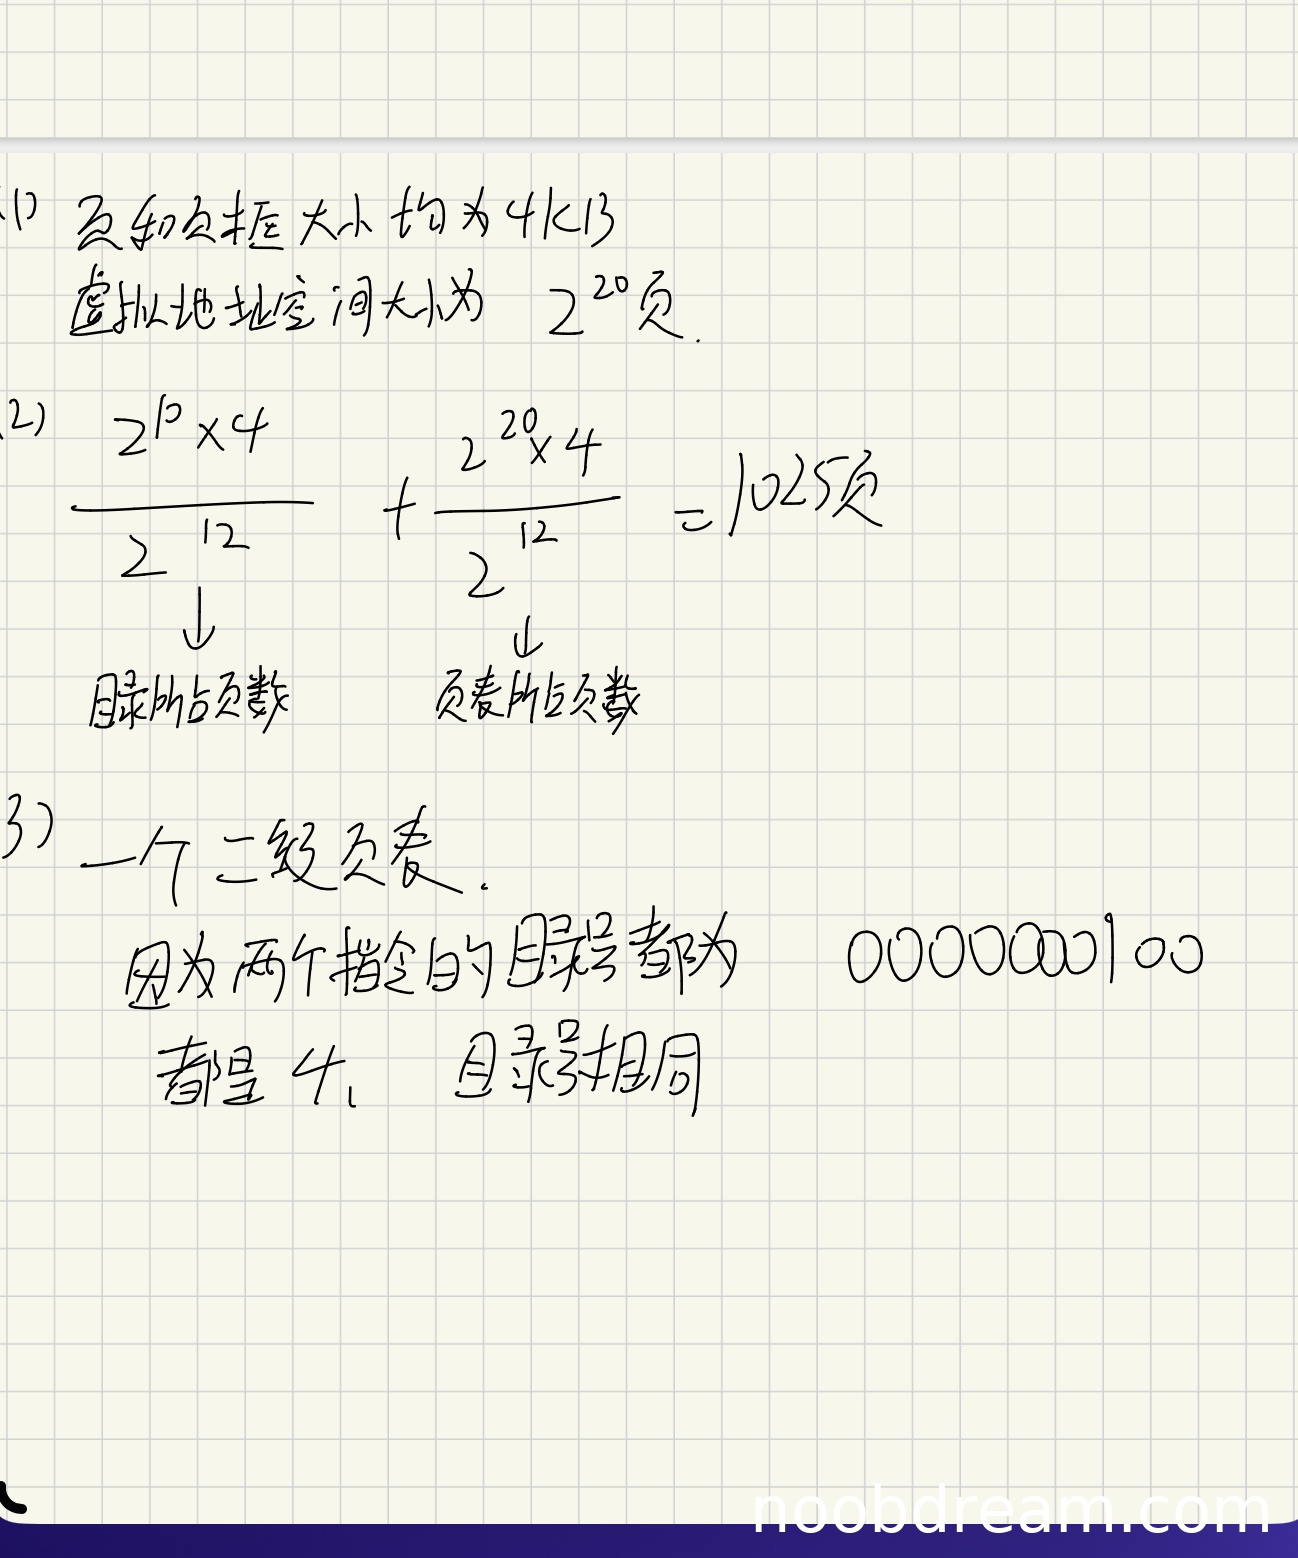 (1) 页和页框大小均为4KB
虚拟地址空间大小为 2^20页.
(2) 2^10×4 / 2^12 + 2^20×4 / 2^12 = 1025页
↓ ↓
目录所占页数 页表所占页数
3) 一个二级页表.
因为两个指令的目录号都为 0000000100
都是 4, 目录号相同
noobdream.com